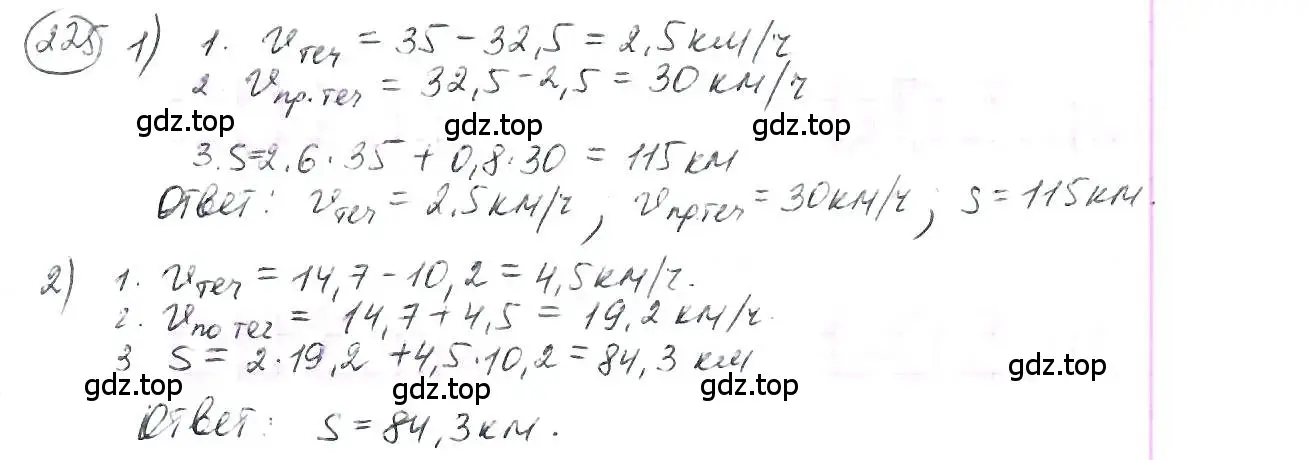 225 1) 1. Vтеч = 35 - 32,5 = 2,5 км/ч
2 Vпр.теч = 32,5 - 2,5 = 30 км/ч
gdz.top gdz.top gdz.top
3. S = 2.6 · 35 + 0,8 · 30 = 115 км
Ответ: Vтеч = 2.5 км/ч, Vпр.теч = 30 км/ч; S = 115 км.
2) 1. Vтеч = 14,7 - 10,2 = 4,5 км/ч.
2. Vпо теч = 14,7 + 4,5 = 19,2 км/ч.
3 S = 2 · 19,2 + 4,5 · 10,2 = 84,3 км
gdz.top gdz.top gdz.top gdz.top
Ответ: S = 84,3 км.